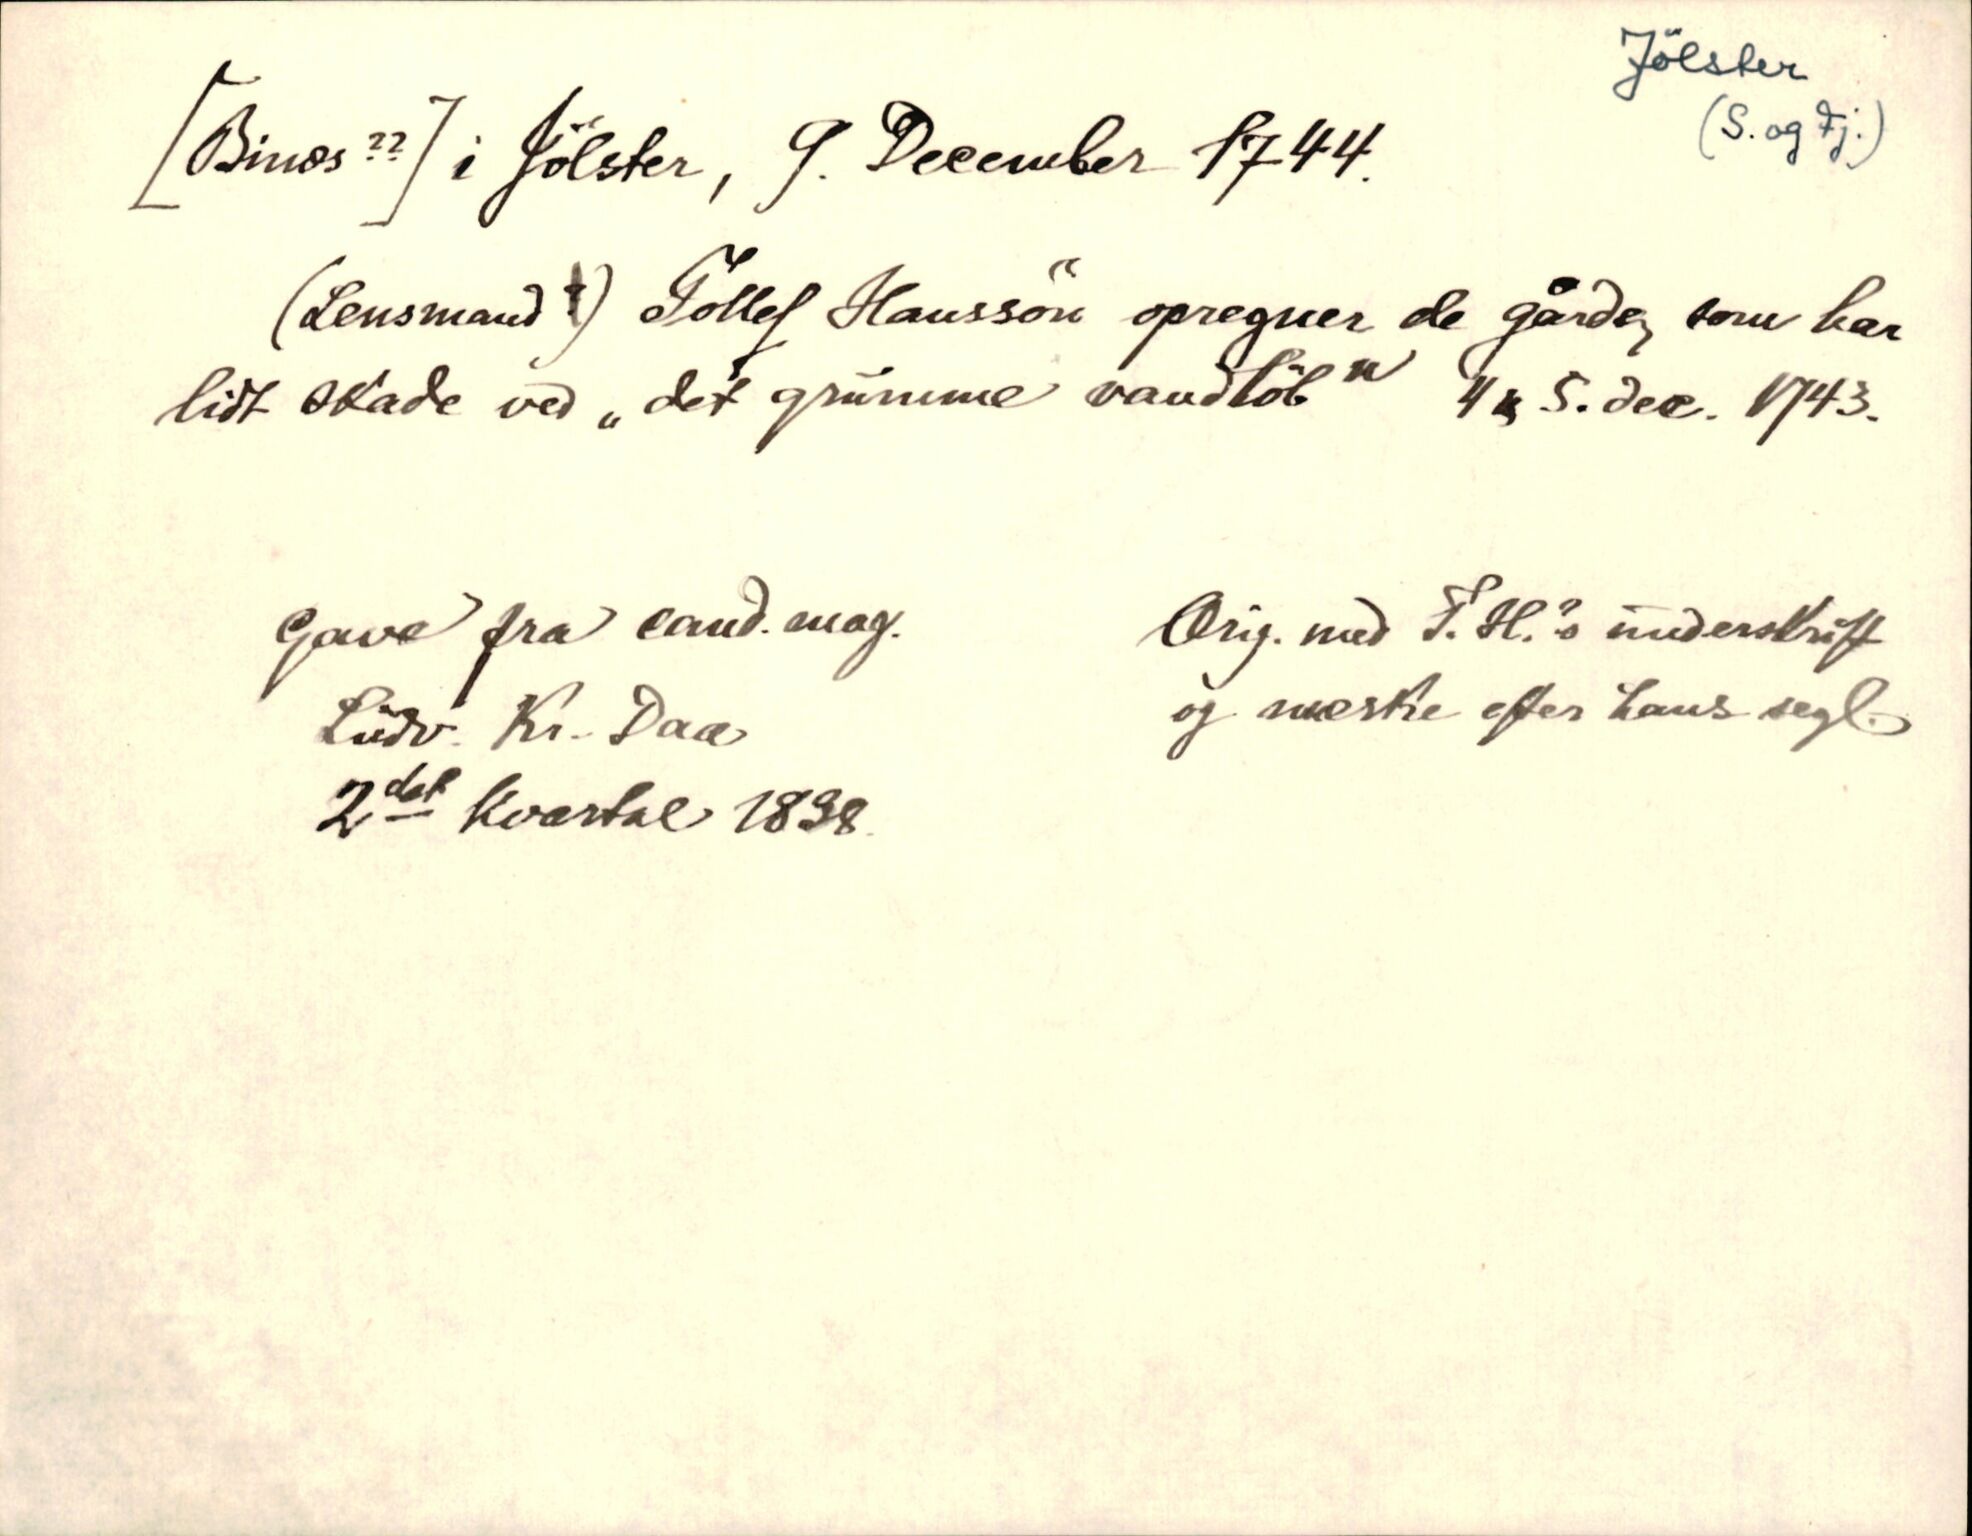 Jölster
(S. og Fj.)
[Binæs ??] i Jölster, 9. December 1744.
(Lensmand ?) Tollef Hanssön opregner de gårde, som har
lidt skade ved „det grumme vandlöb" 4 & 5. dec. 1743.
Gave fra cand. mag.
Ludv. Kr. Daa
2det kvartal 1838.
Orig. med T. H.'s underskrift
og mærke efter hans segl.